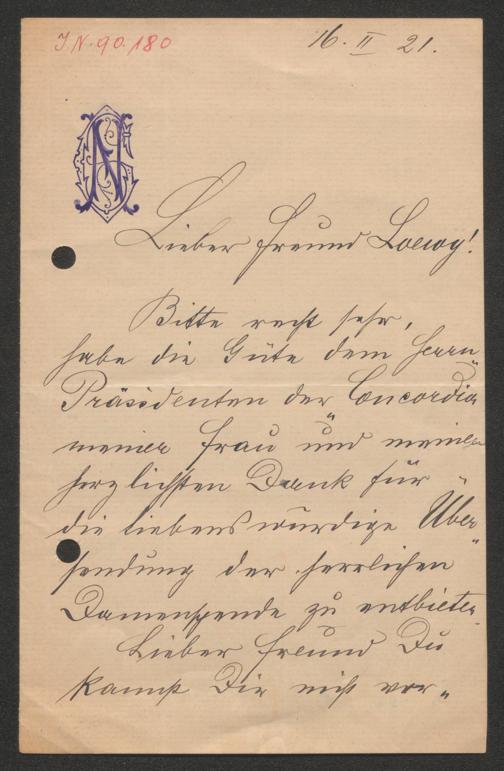 I.N. 90.180
16. II 21.
Lieber Freund Loewy!
Bitte recht sehr,
habe die Güte dem Herrn
Präsidenten der „Concordia"
meiner Frau und meinen
herzlichsten Dank für
die liebenswürdige Über-
sendung der herrlichen
Damenspende zu entbieten.
Lieber Freund Du
kannst Dir nicht vor-